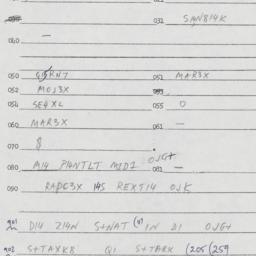 031 SAN814K
040 —
050 051 MAR3X
052 MOJ3X
054 SE4XL 055 0
060 MAR3X 061 —
070 8
080 A14 P14NTLT MJD1 OJG+ 081 —
090 RADG3X 145 REXT14 OJK
901 D14 Z14N S+NAT IN D1 OJG+
902 S+TAXK8 Q1 S+TARX (205 (259